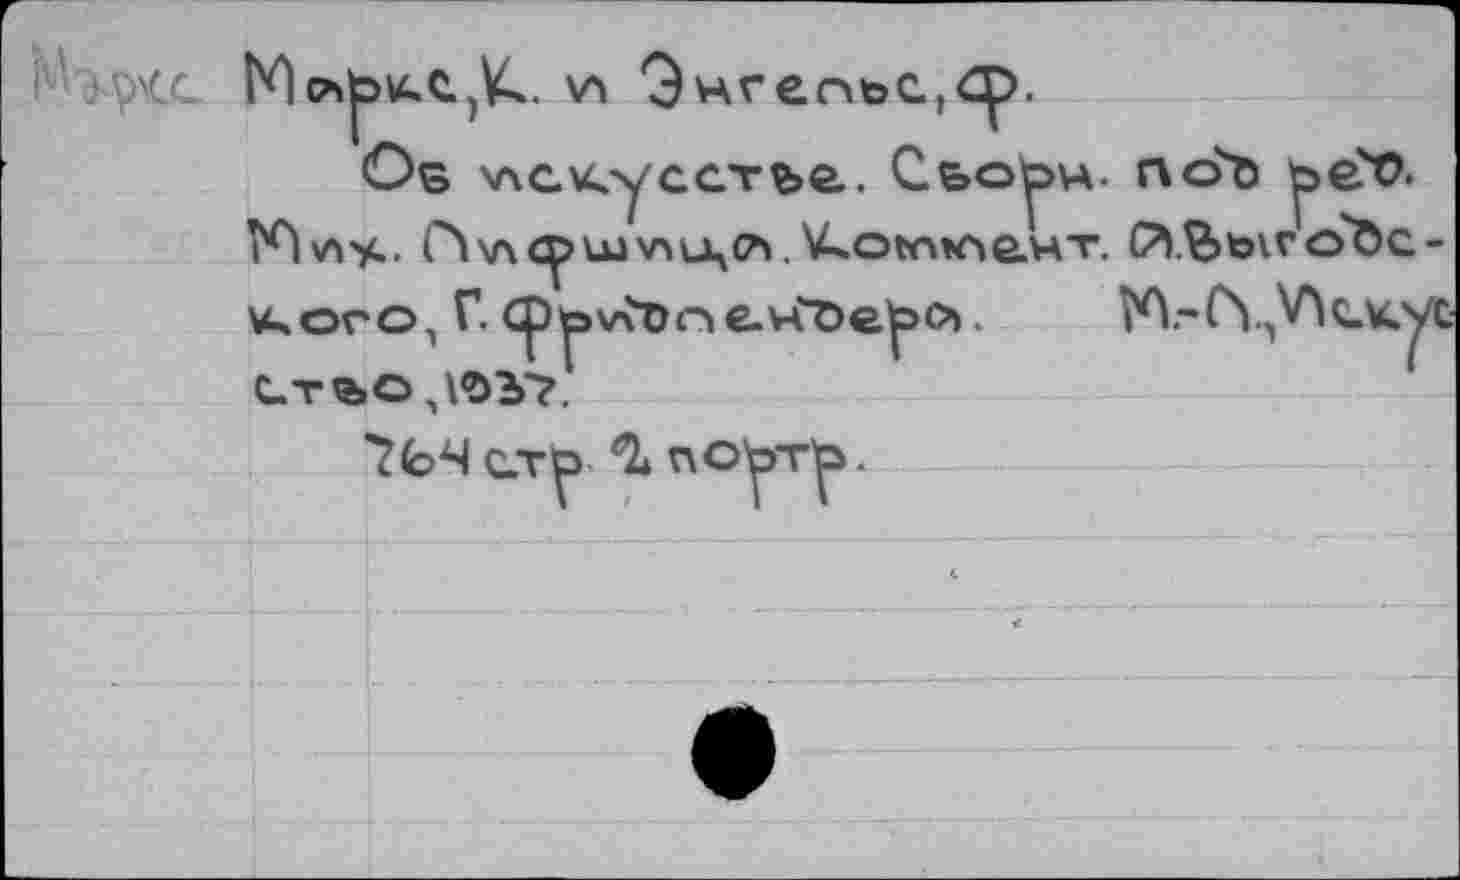 Маркс Маркс, К. и Энгельс, Ф.
Об искусстве. Сборн. под ред.
Мих. Лифшица. Коммент. А. Выгодс-
кого, Г. Фридлендера. М.-Л., Искус
ство, 1937.
764 стр 2 портр.